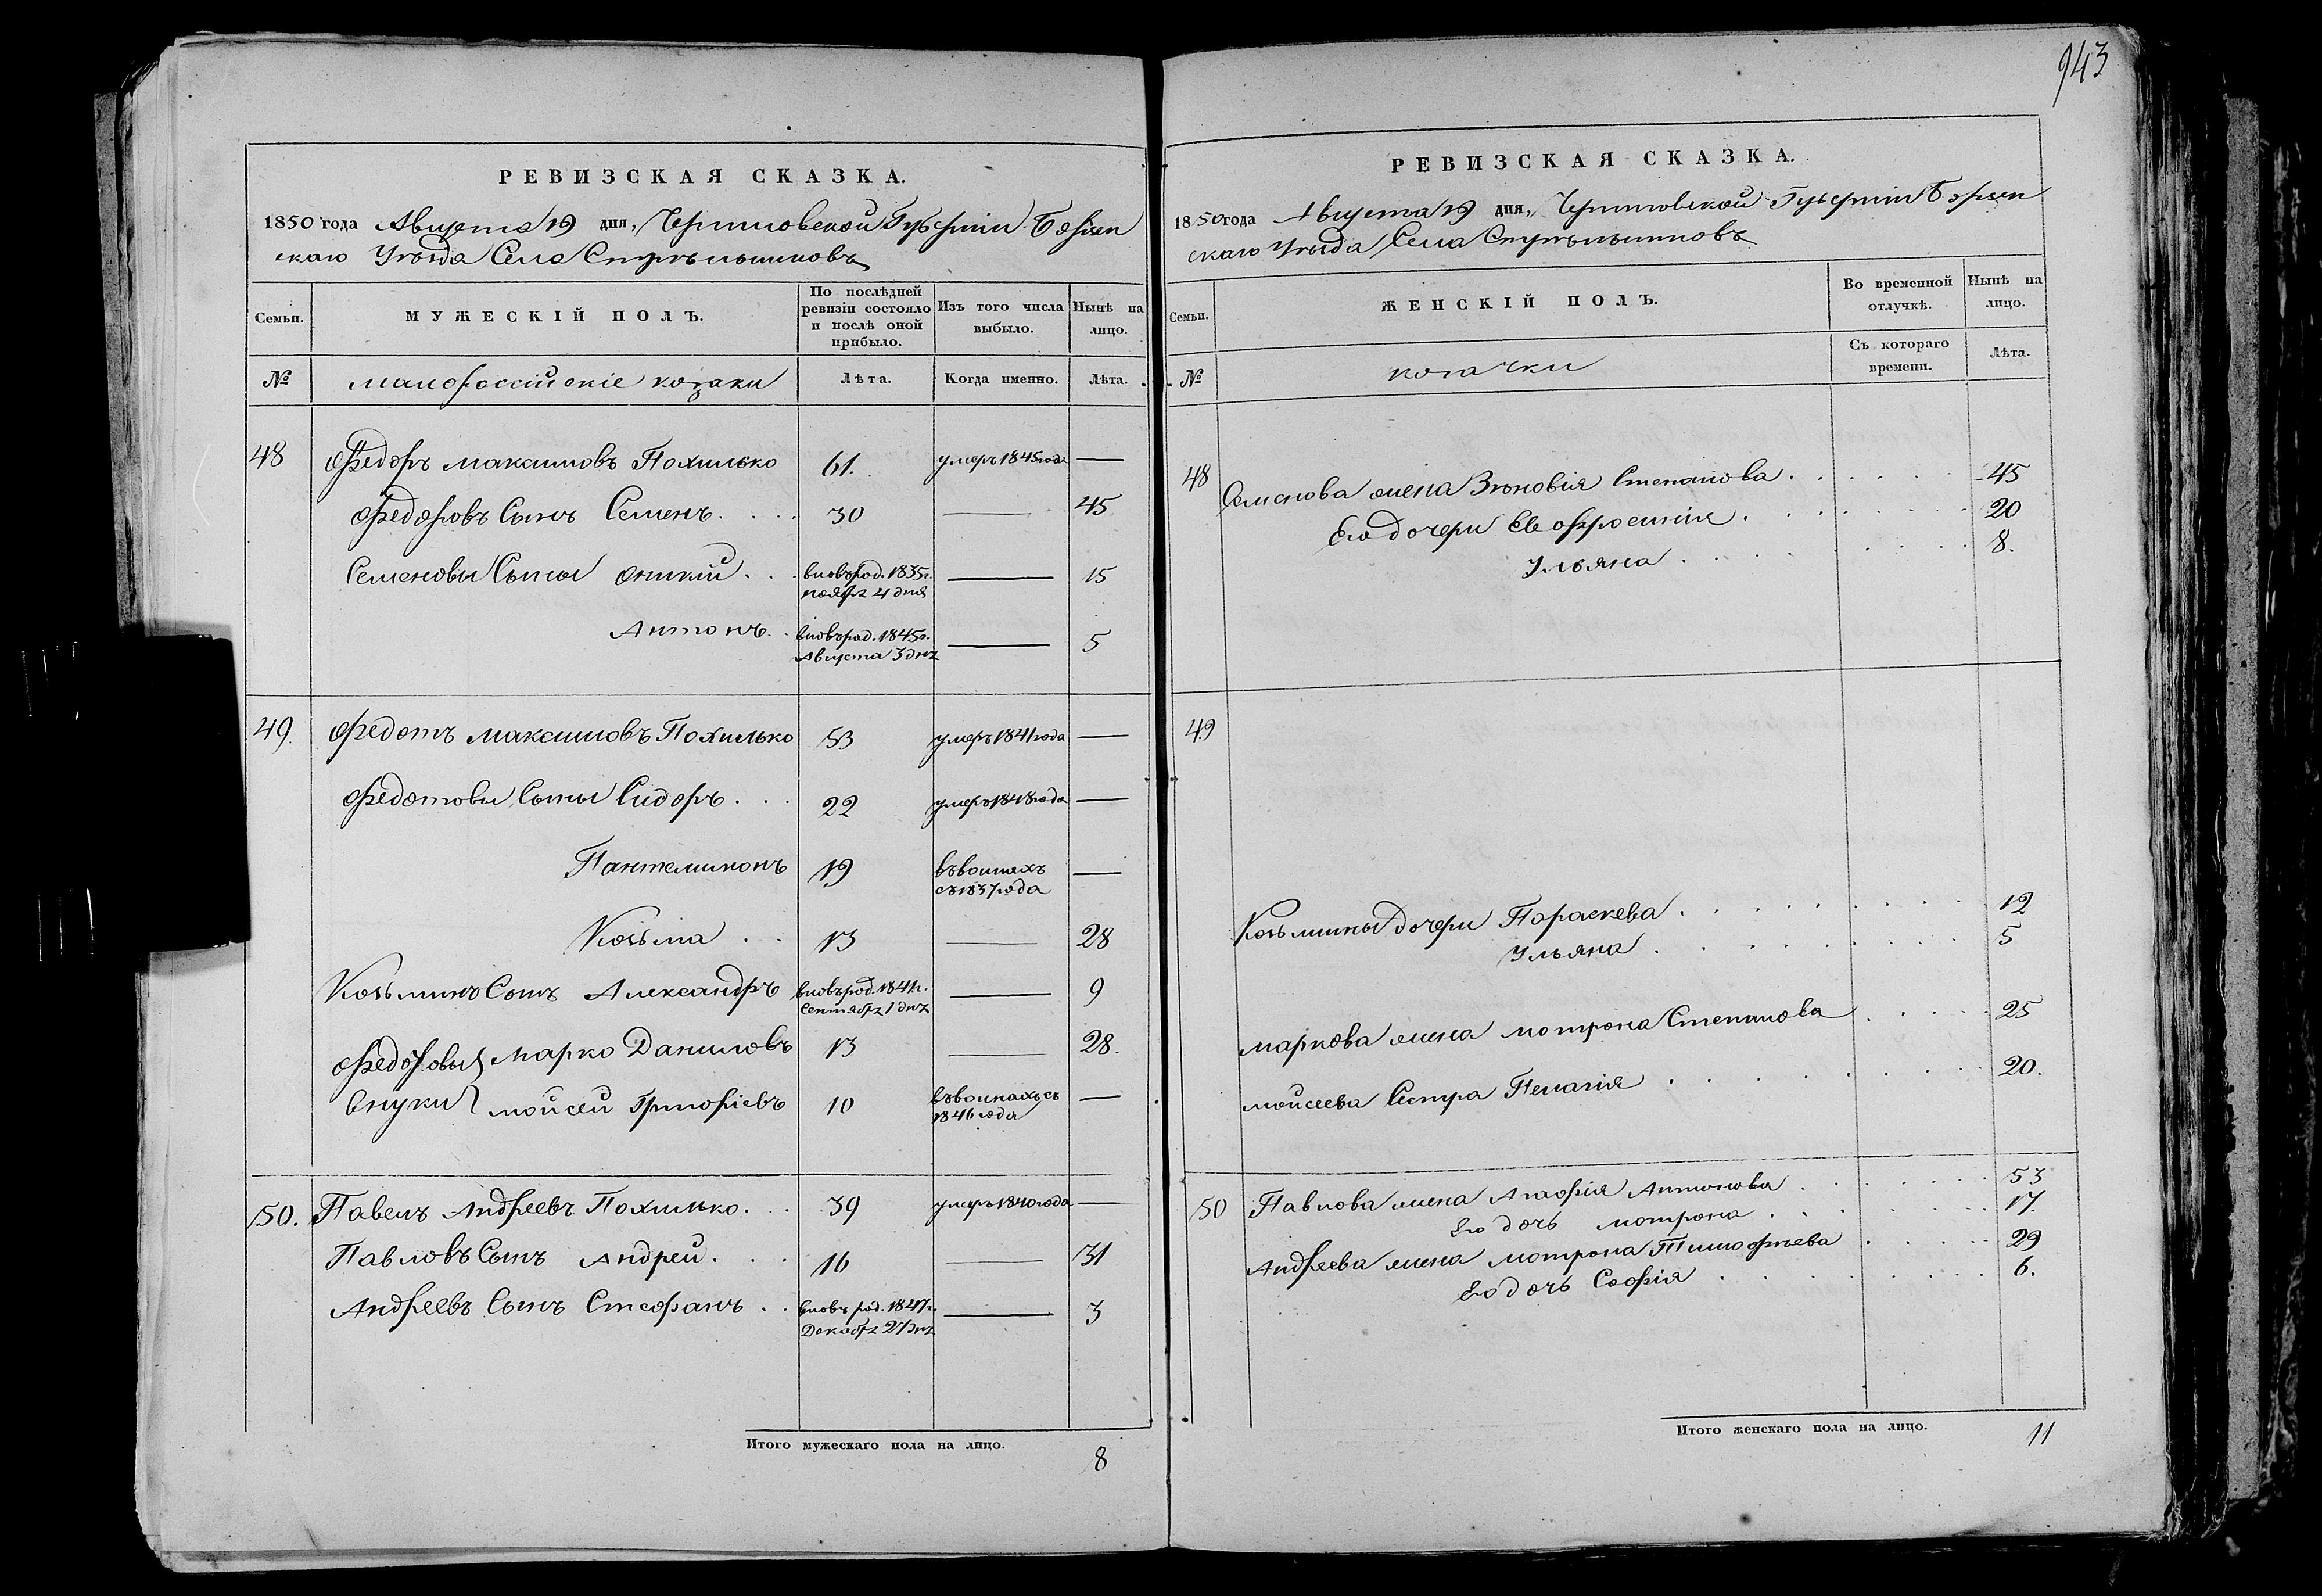 943
РЕВИЗСКАЯ СКАЗКА.
1850 года Августа 19 дня, Черниговской Губерніи Борзен
скаго Уѣзда Села Стрѣльниковъ
Семьи. МУЖЕСКІЙ ПОЛЪ. По послѣдней ревизіи состояло и послѣ оной прибыло. Изъ того числа выбыло. Нынѣ на лицо.
№ малороссійскіе козаки Лѣта. Когда именно. Лѣта.
48 Федоръ Максимовъ Похилько 61. умеръ 1845 года —
Федоровъ Сынъ Семенъ 30 — 45
Семеновы Сыны Оникій вновь род. 1835 г. ноябр. 4 дня — 15
Антонъ вновь род. 1845 г. Августа 3 дня — 5
49. Федотъ Максимовъ Похилько 53 умеръ 1841 года —
Федотовы Сыны Сидоръ 22 умеръ 1848 года —
Пантелимонъ 19 въ воинахъ съ 1837 года —
Козьма 13 — 28
Козьминъ Сынъ Александръ вновь род. 1841 г. Сентябр. 1 дня — 9
Федоровы Марко Даниловъ 13 — 28.
внуки Мойсей Григоріевъ 10 въ воинахъ съ 1846 года —
50. Павелъ Андреевъ Похилько. 39 умеръ 1840 года —
Павловъ Сынъ Андрей. 16 — 31
Андреевъ Сынъ Стефанъ вновь род. 1847 г. Декабр. 27 дня — 3
Итого мужескаго пола на лицо. 8
РЕВИЗСКАЯ СКАЗКА.
1850 года Августа 19 дня, Черниговской Губерніи Борзен
скаго Уѣзда Села Стрѣльниковъ
Семьи. ЖЕНСКІЙ ПОЛЪ. Во временной отлучкѣ. Нынѣ на лицо.
№ козачки Съ котораго времени. Лѣта.
48 Семенова жена Зѣновія Степанова 45
Его дочери Евфросинія 20
Ульяна 8.
49
Козьмины дочери Параскева 12
Ульяна 5
Маркова жена Мотрона Степанова 25
Мойсеева Сестра Пелагія 20.
50 Павлова жена Агафія Антонова 53
Его дочь Мотрона 17.
Андреева жена Мотрона Тимофѣева 29
Его дочь Софія 6.
Итого женскаго пола на лицо. 11